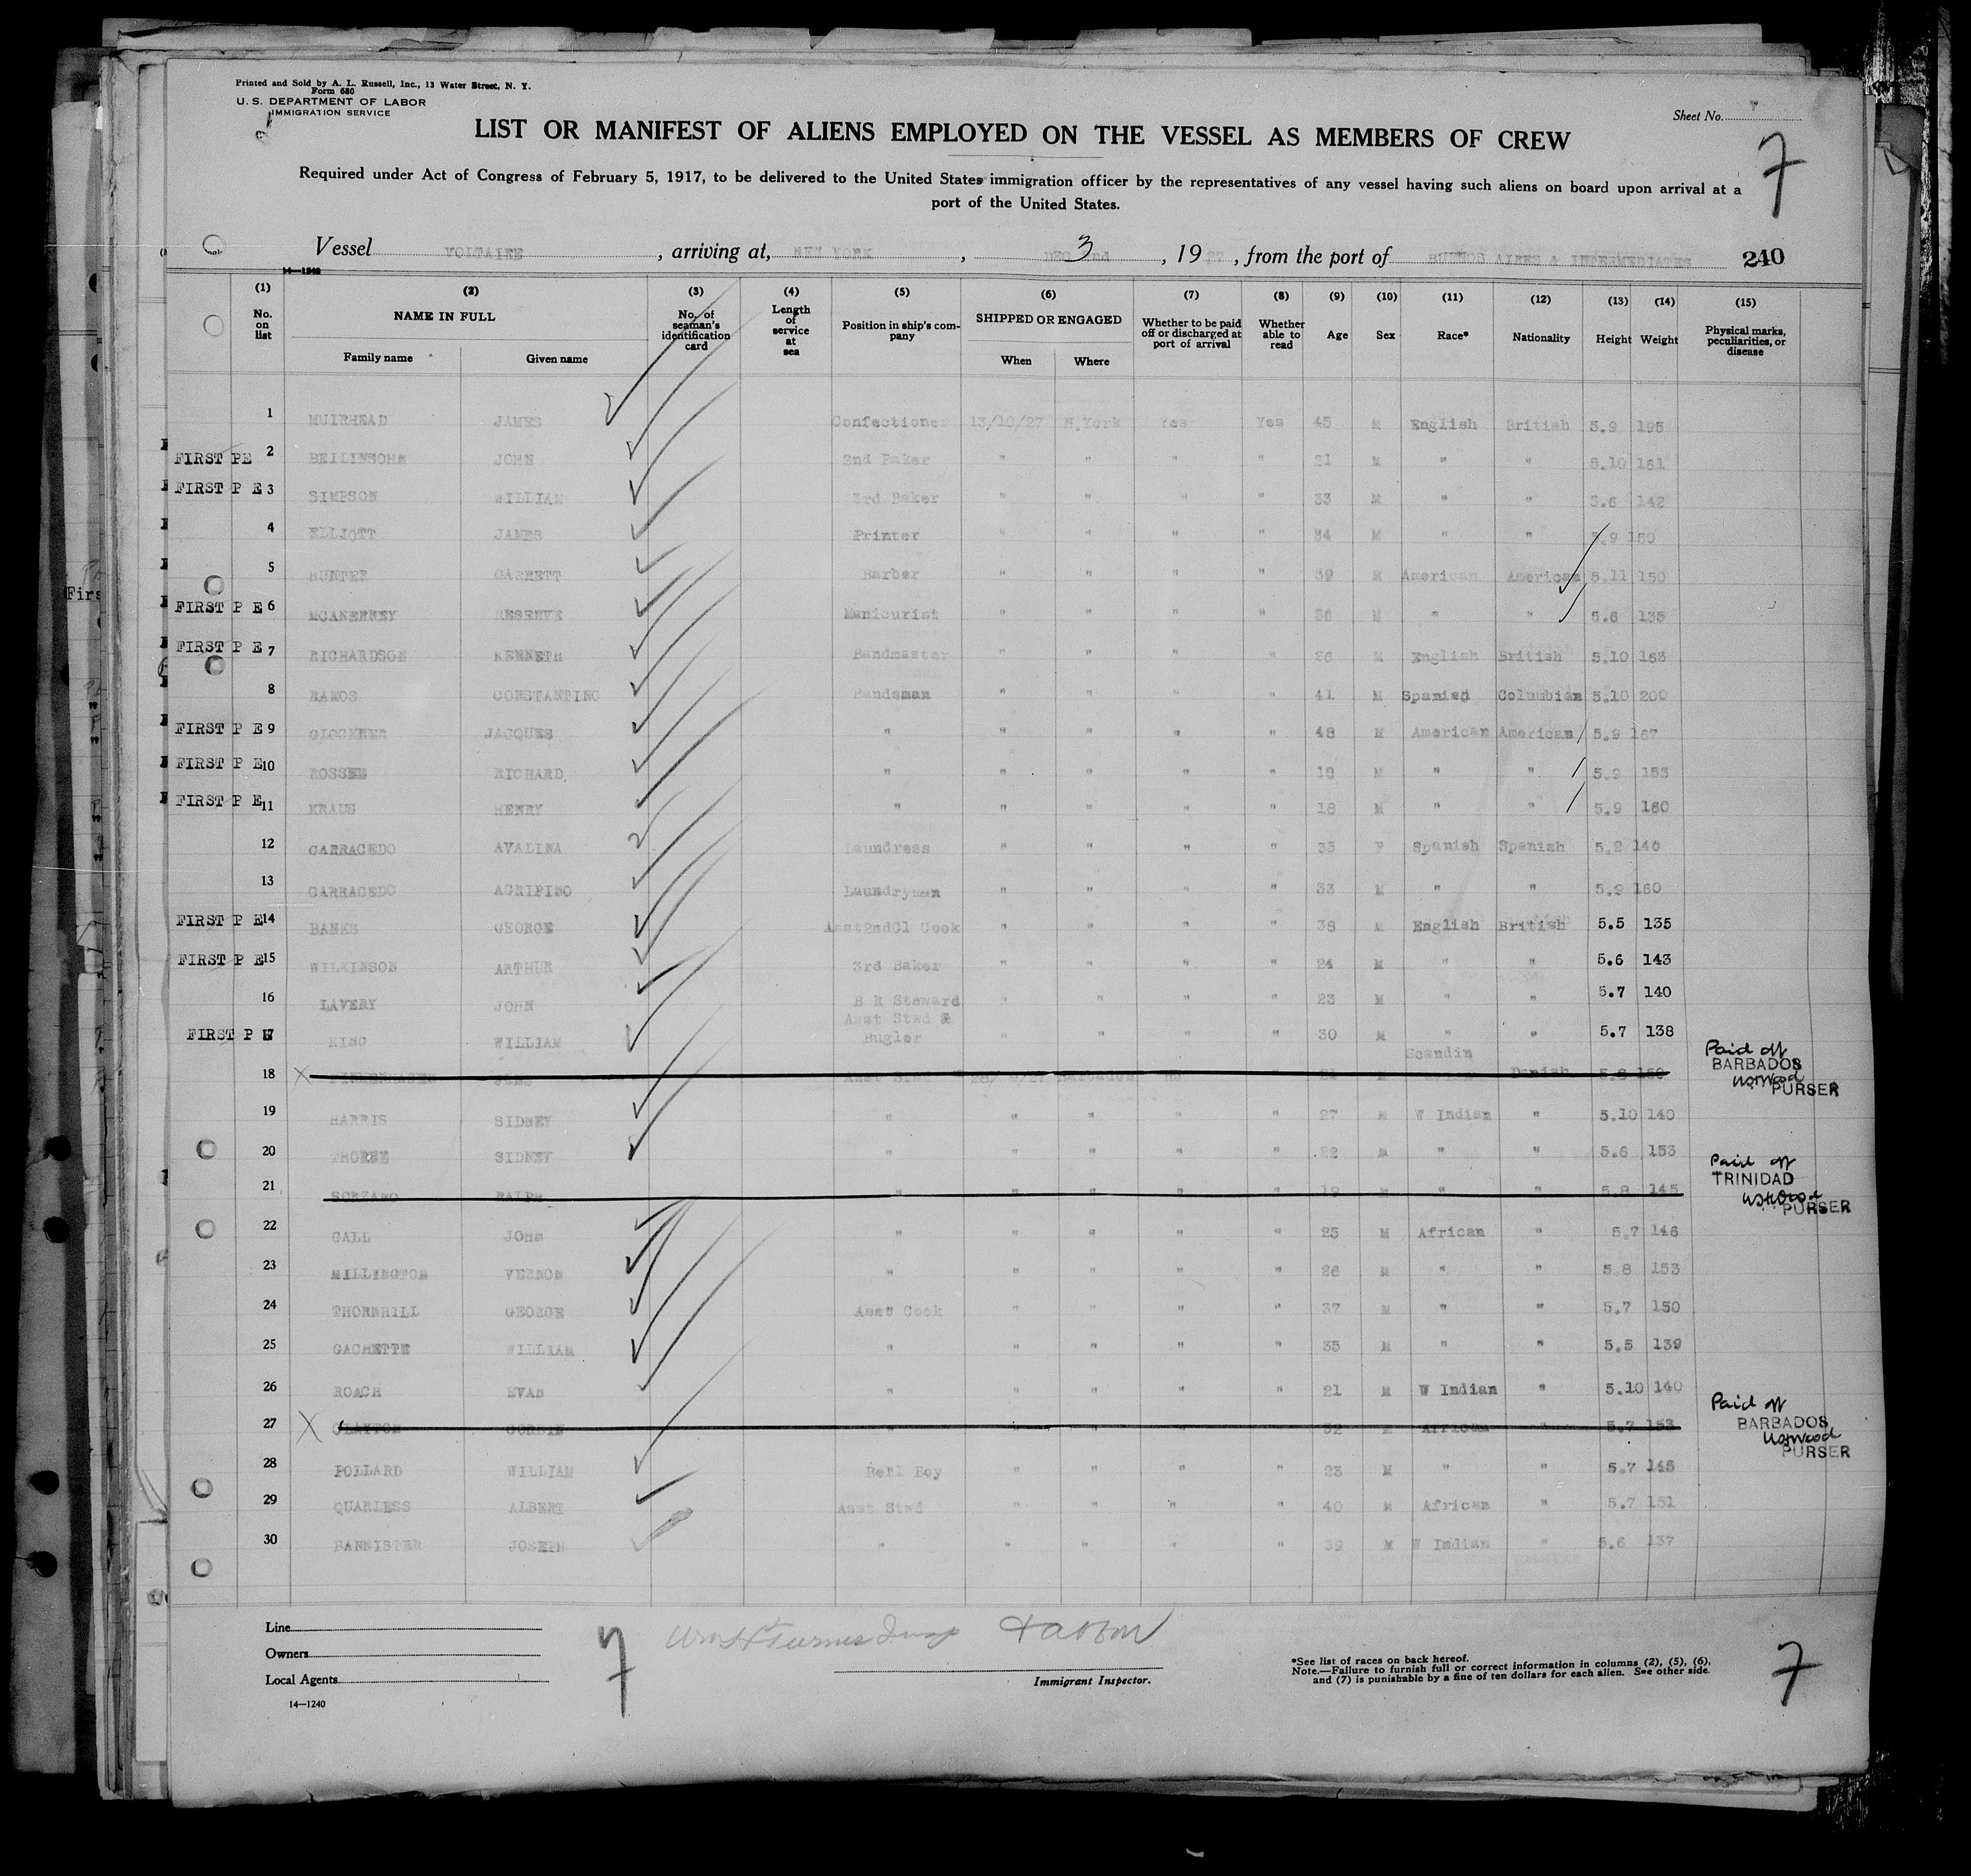 Printed and Sold by A. L. Russell, Inc., 13 Water Street, N. Y.
Form 680
U. S. DEPARTMENT OF LABOR
IMMIGRATION SERVICE
Sheet No.
7
LIST OR MANIFEST OF ALIENS EMPLOYED ON THE VESSEL AS MEMBERS OF CREW
Required under Act of Congress of February 5, 1917, to be delivered to the United States immigration officer by the representatives of any vessel having such aliens on board upon arrival at a
port of the United States.
Vessel VOLTAIRE, arriving at, NEW YORK, DEC 3nd, 1927, from the port of BUENOS AIRES & INTERMEDIATES 240
14—1240
(1) (2) (3) (4) (5) (6) (7) (8) (9) (10) (11) (12) (13) (14) (15)
No. on list NAME IN FULL Family name Given name No. of seaman's identification card Length of service at sea Position in ship's company SHIPPED OR ENGAGED When Where Whether to be paid off or discharged at port of arrival Whether able to read Age Sex Race* Nationality Height Weight Physical marks, peculiarities, or disease
1 MUIRHEAD JAMES Confectioner 13/10/27 N.York Yes Yes 45 M English British 5.9 195
FIRST P E 2 BEILINSOHN JOHN 2nd Baker " " " " 21 M " " 5.10 161
FIRST P E 3 SIMPSON WILLIAM 3rd Baker " " " " 33 M " " 5.6 142
4 ELLIOTT JAMES Printer " " " " 34 M " " 5.9 150
5 HUNTER GARRETT Barber " " " " 39 M American American 5.11 150
FIRST P E 6 MCANERNEY RESERVE Manicurist " " " " 36 M " " 5.6 135
FIRST P E 7 RICHARDSON KENNETH Bandmaster " " " " 26 M English British 5.10 163
8 RAMOS CONSTANTINO Bandsman " " " " 41 M Spanish Columbian 5.10 200
FIRST P E 9 GLOCKNER JACQUES " " " " " 48 M American American 5.9 167
FIRST P E 10 ROSSEE RICHARD " " " " " 18 M " " 5.9 153
FIRST P E 11 KRAUS HENRY " " " " " 18 M " " 5.9 160
12 CARRACEDO AVALINA Laundress " " " " 33 F Spanish Spanish 5.2 140
13 CARRACEDO AGRIPINO Laundryman " " " " 33 M " " 5.9 160
FIRST P E 14 BANKS GEORGE Asst2ndCl Cook " " " " 38 M English British 5.5 135
FIRST P E 15 WILKINSON ARTHUR 3rd Baker " " " " 24 M " " 5.6 143
16 LAVERY JOHN B R Steward " " " " 23 M " " 5.7 140
FIRST P E 17 KING WILLIAM Asst Stwd & Bugler " " " " 30 M " " 5.7 138
18 Asst Stwd Barbados No 21 Scandin Danish 5.8 150 Paid off BARBADOS PURSER
19 HARRIS SIDNEY " " " " " 27 M W Indian " 5.10 140
20 THORNE SIDNEY " " " " " 22 M " " 5.6 153
21 SORZANO RALPH " " " " " 19 M " " 5.8 145 Paid off TRINIDAD PURSER
22 GALL JOHN " " " " " 25 M African " 5.7 146
23 MILLINGTON VERNON " " " " " 26 M " " 5.8 153
24 THORNHILL GEORGE Asst Cook " " " " 37 M " " 5.7 150
25 GACHETTE WILLIAM " " " " " 35 M " " 5.5 139
26 ROACH EVAN " " " " " 21 M W Indian " 5.10 140
27 CLAYTON GORDIN " " " " " 32 M African " 5.7 153 Paid off BARBADOS PURSER
28 POLLARD WILLIAM Bell Boy " " " " 23 M " " 5.7 145
29 QUARLESS ALBERT Asst Stwd " " " " 40 M African " 5.7 151
30 BANNISTER JOSEPH " " " " " 39 M W Indian " 5.6 137
Line
Owners
Local Agents
14—1240
7
Immigrant Inspector.
*See list of races on back hereof.
Note.—Failure to furnish full or correct information in columns (2), (5), (6), and (7) is punishable by a fine of ten dollars for each alien. See other side.
7